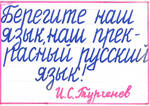 Берегите наш
язык, наш прек-
расный русский
язык!
И.С.Тургенев